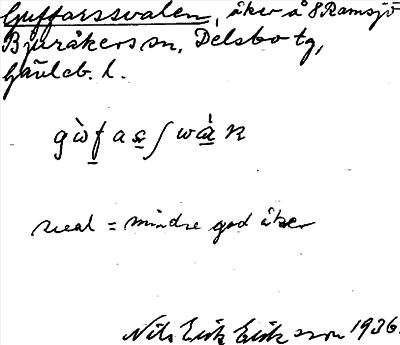 Guffarssvalen, åker å 8 Ramsjö
Bjuråkers sn, Delsbo tg,
Gävleb. l.
gùfasʃwáɴ
sval = mindre god åker
Nils Erik Eriksson 1936